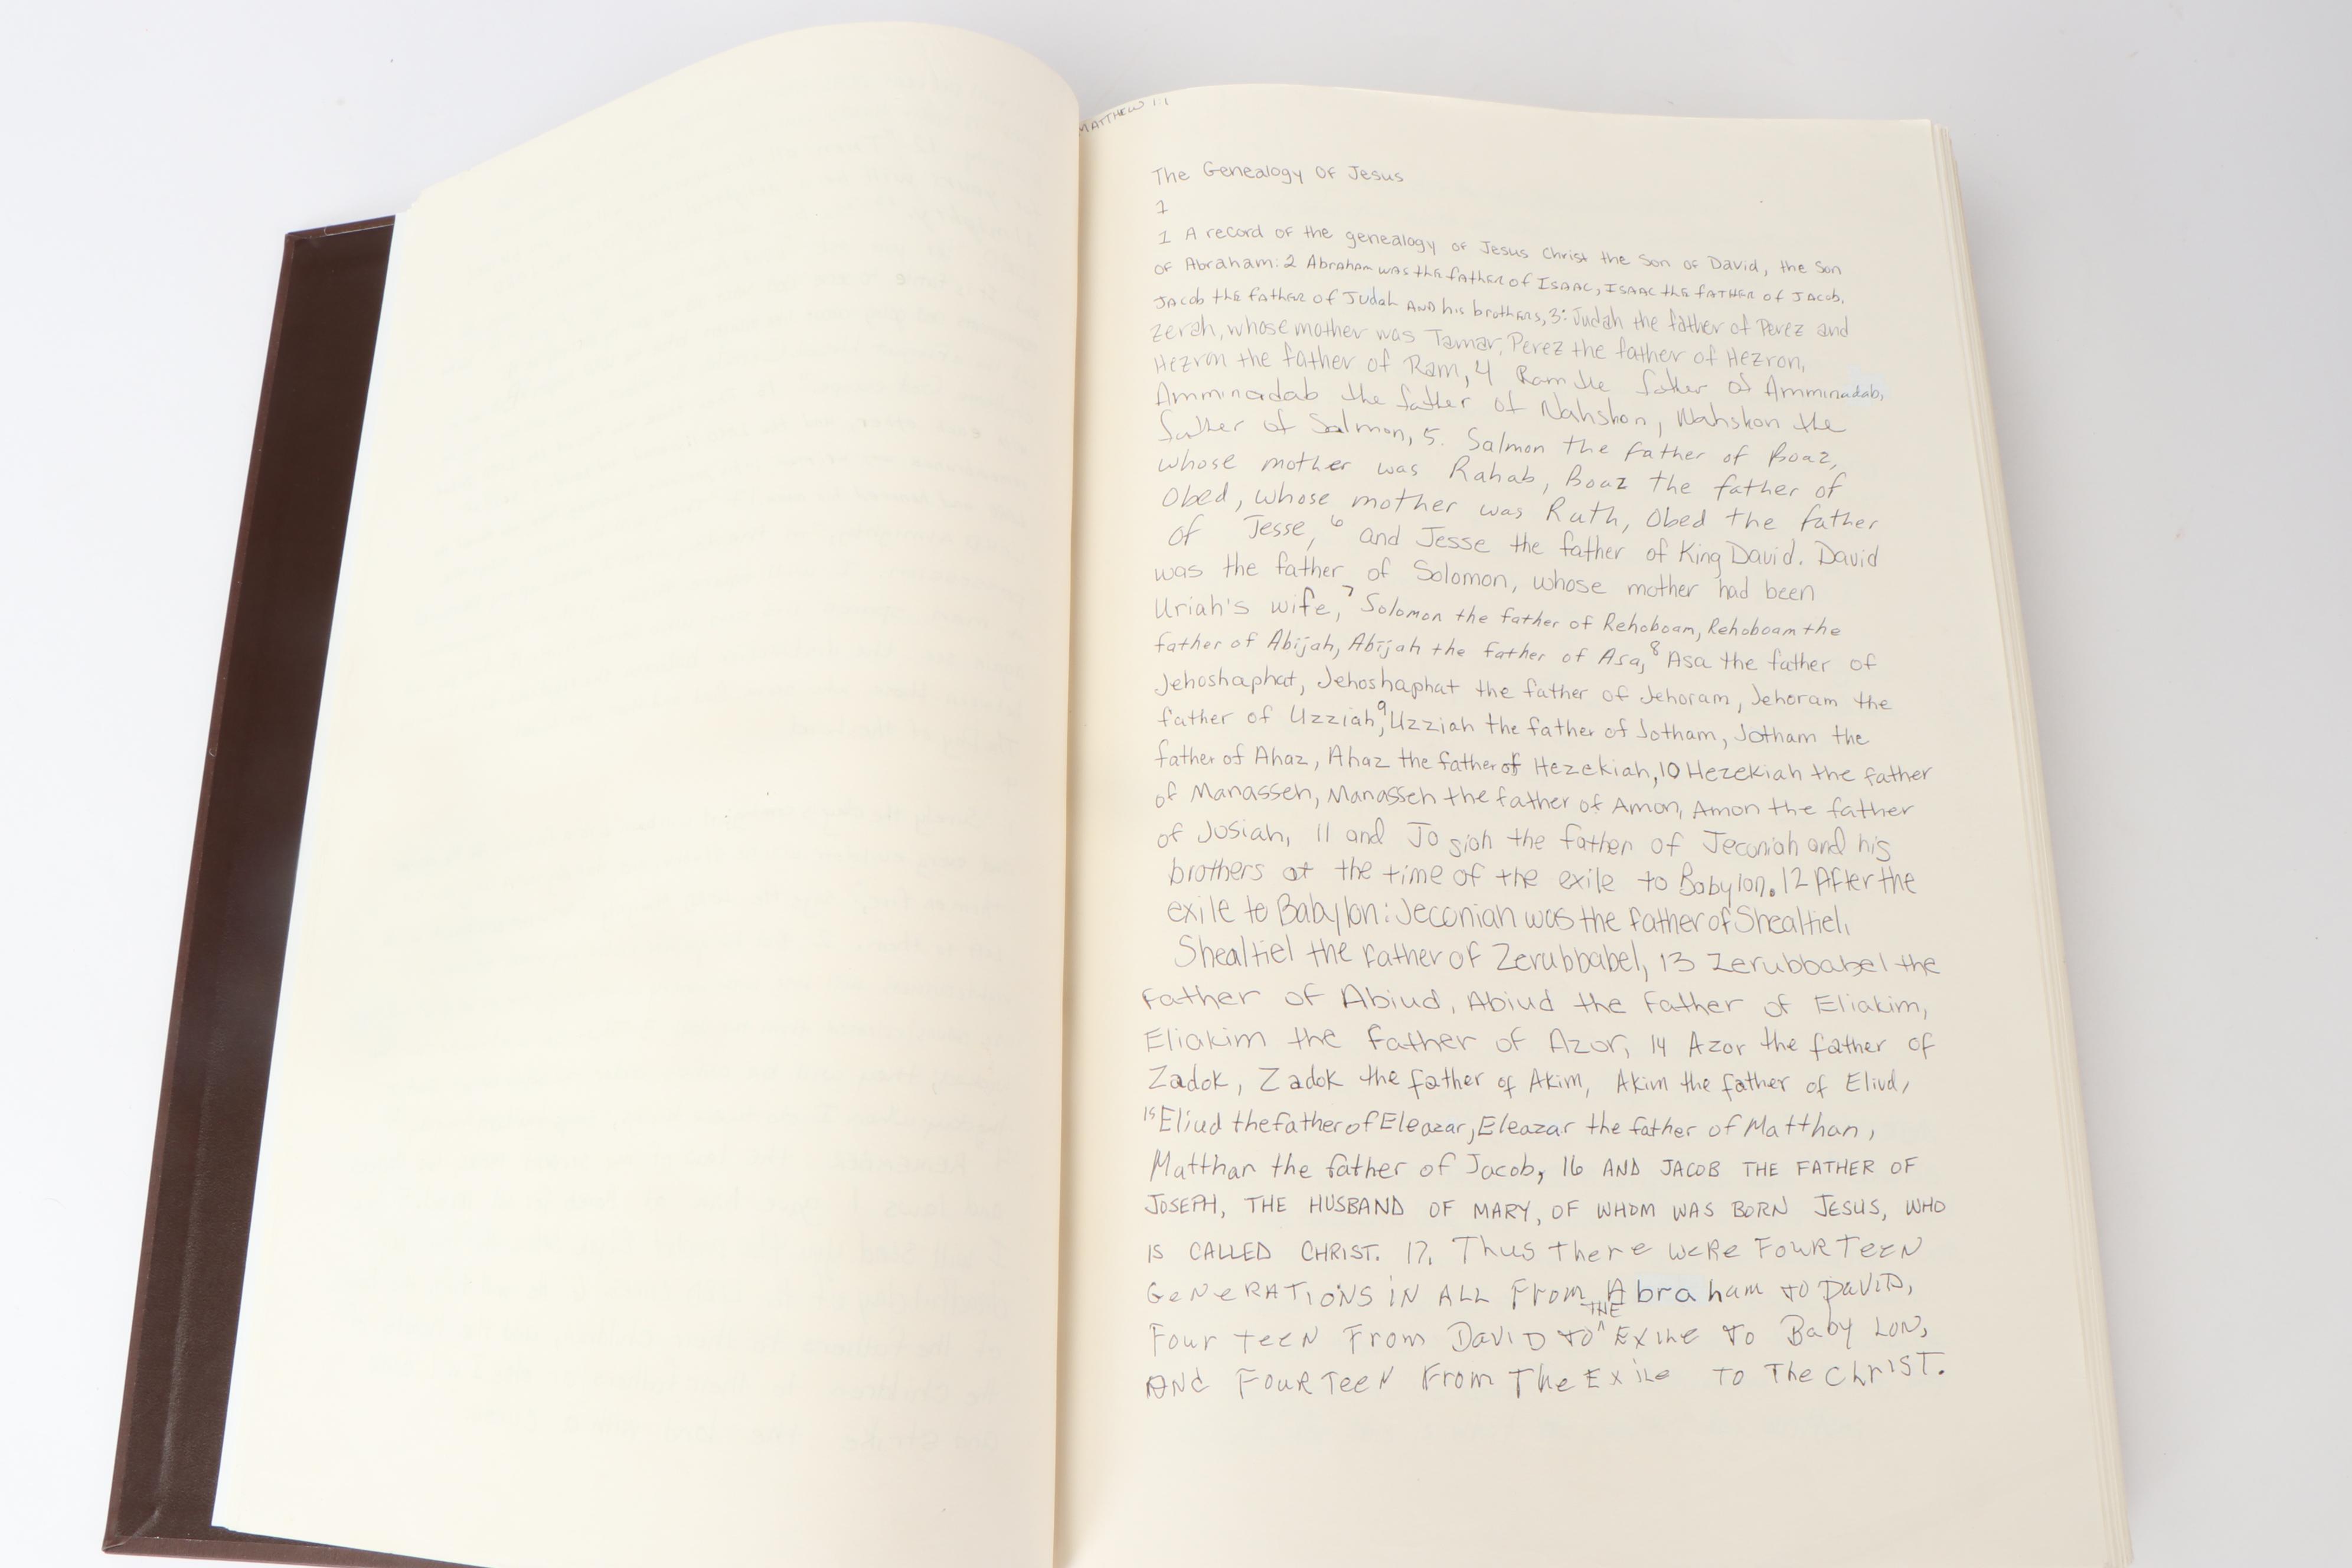 MATTHEW 1:1
The Genealogy Of Jesus
1
1 A record of the genealogy of Jesus Christ the Son of David, the Son
of Abraham: 2 Abraham was the father of ISAAC, ISAAC the father of Jacob,
Jacob the father of Judah AND his brothers, 3: Judah the father of Perez and
Zerah, whose mother was Tamar, Perez the father of Hezron,
Hezron the father of Ram, 4 Ram the father of Amminadab,
Amminadab the father of Nahshon, Nahshon the
father of Salmon, 5. Salmon the father of Boaz,
whose mother was Rahab, Boaz the father of
Obed, whose mother was Ruth, Obed the father
of Jesse, 6 and Jesse the father of King David. David
was the father of Solomon, whose mother had been
Uriah's wife, 7 Solomon the father of Rehoboam, Rehoboam the
father of Abijah, Abijah the father of Asa, 8 Asa the father of
Jehoshaphat, Jehoshaphat the father of Jehoram, Jehoram the
father of Uzziah, 9 Uzziah the father of Jotham, Jotham the
father of Ahaz, Ahaz the father of Hezekiah, 10 Hezekiah the father
of Manasseh, Manasseh the father of Amon, Amon the father
of Josiah, 11 and Josiah the father of Jeconiah and his
brothers at the time of the exile to Babylon. 12 After the
exile to Babylon: Jeconiah was the father of Shealtiel,
Shealtiel the father of Zerubbabel, 13 Zerubbabel the
father of Abiud, Abiud the father of Eliakim,
Eliakim the father of Azor, 14 Azor the father of
Zadok, Zadok the father of Akim, Akim the father of Eliud,
15 Eliud the father of Eleazar, Eleazar the father of Matthan,
Matthan the father of Jacob, 16 AND JACOB THE FATHER OF
JOSEPH, THE HUSBAND OF MARY, OF WHOM WAS BORN JESUS, WHO
IS CALLED CHRIST. 17. Thus there weRe FouRTeeN
GeNeRATiONS iN ALL From Abraham to DaviD,
FourteeN From DaviD to THE Exile to BabyLoN,
AND FouRTeeN From The Exile to The ChrIST.